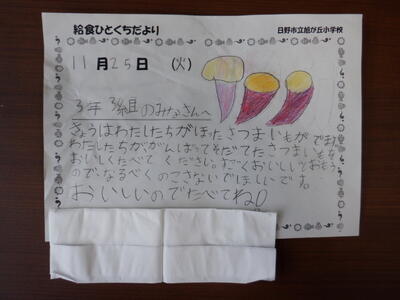 給食ひとくちだより
日野市立旭が丘小学校
11月25日 (火)
3年 3組のみなさんへ
きょうはわたしたちがほったさつまいもがでます。
わたしたちががんばってそだてたさつまいもを
おいしくたべてください。すごくおいしいとおもう
ので、なるべくのこさないでほしいです。
おいしいのでたべてね!